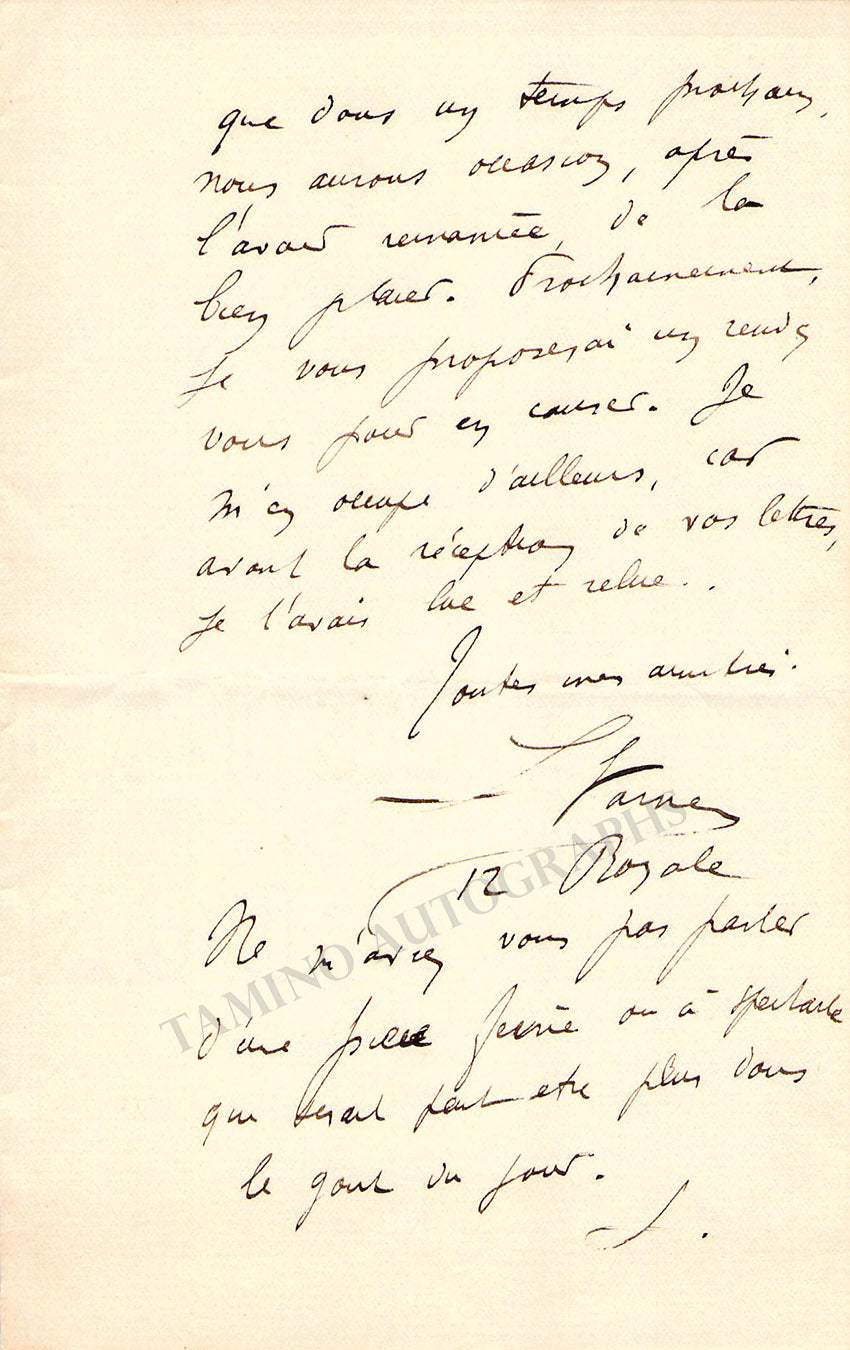 que dans un temps prochain,
nous aurons occasion, après
l'avoir remaniée, de la
bien placer. Prochainement,
je vous proposerai un rendez
vous pour en causer. Je
m'en occupe d'ailleurs, car
avant la réception de vos lettres,
je l'avais lue et relue..
Toutes mes amitiés.
L Varney
12 Royale
Ne m'aviez vous pas parler
d'une pièce féerie ou à spectacle
qui serait peut etre plus dans
le gout du jour.
L.
TAMINO AUTOGRAPHS